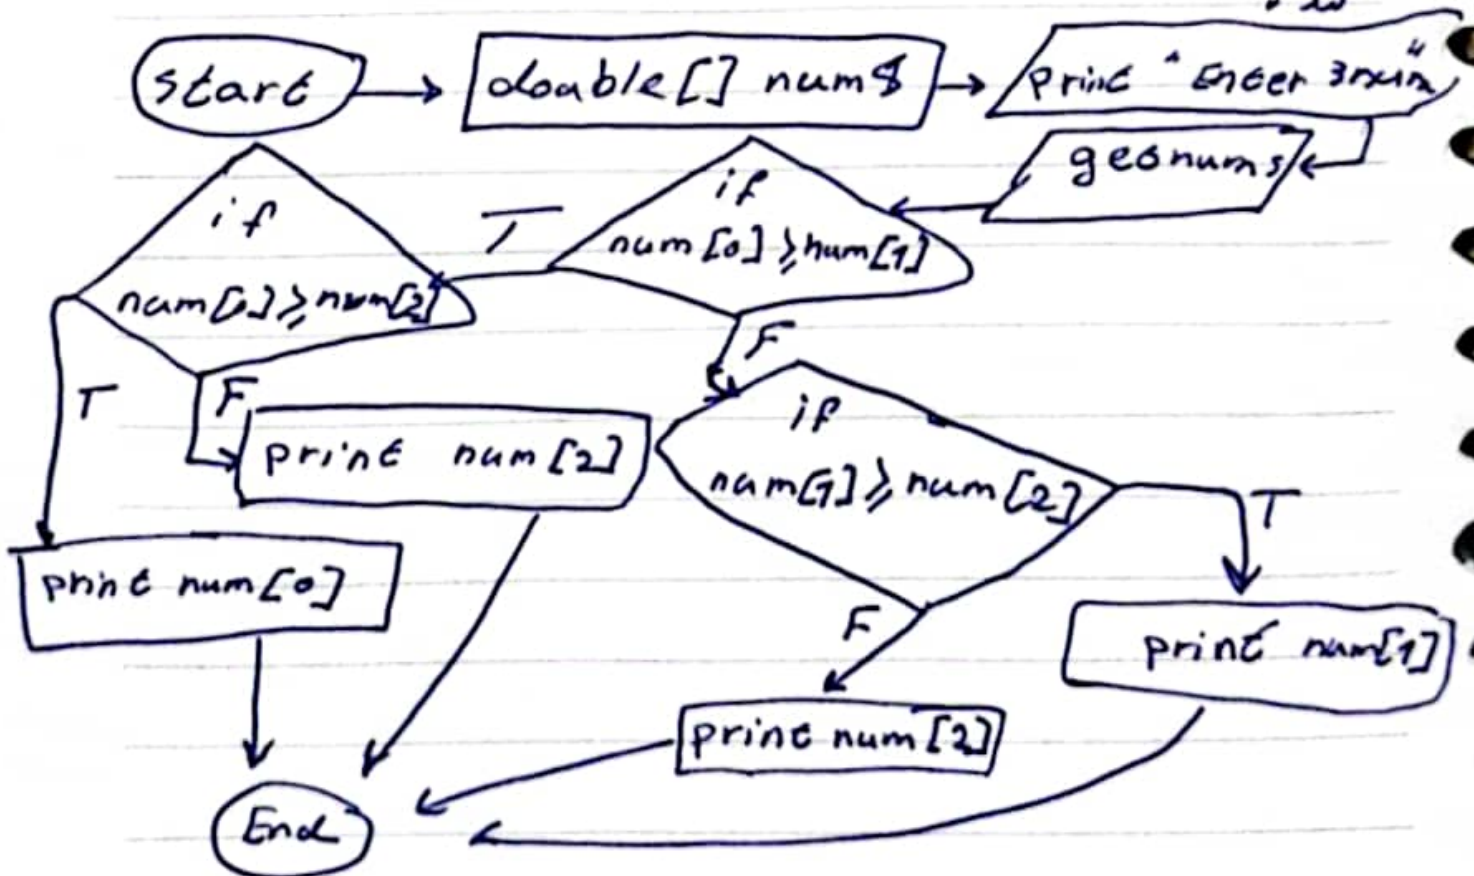 start
double[] nums
print "Enter 3num"
get nums
if
num[0] ≥ num[1]
T
F
if
num[0] ≥ num[2]
T
F
print num[2]
print num[0]
if
num[1] ≥ num[2]
T
F
print num[1]
print num[2]
End